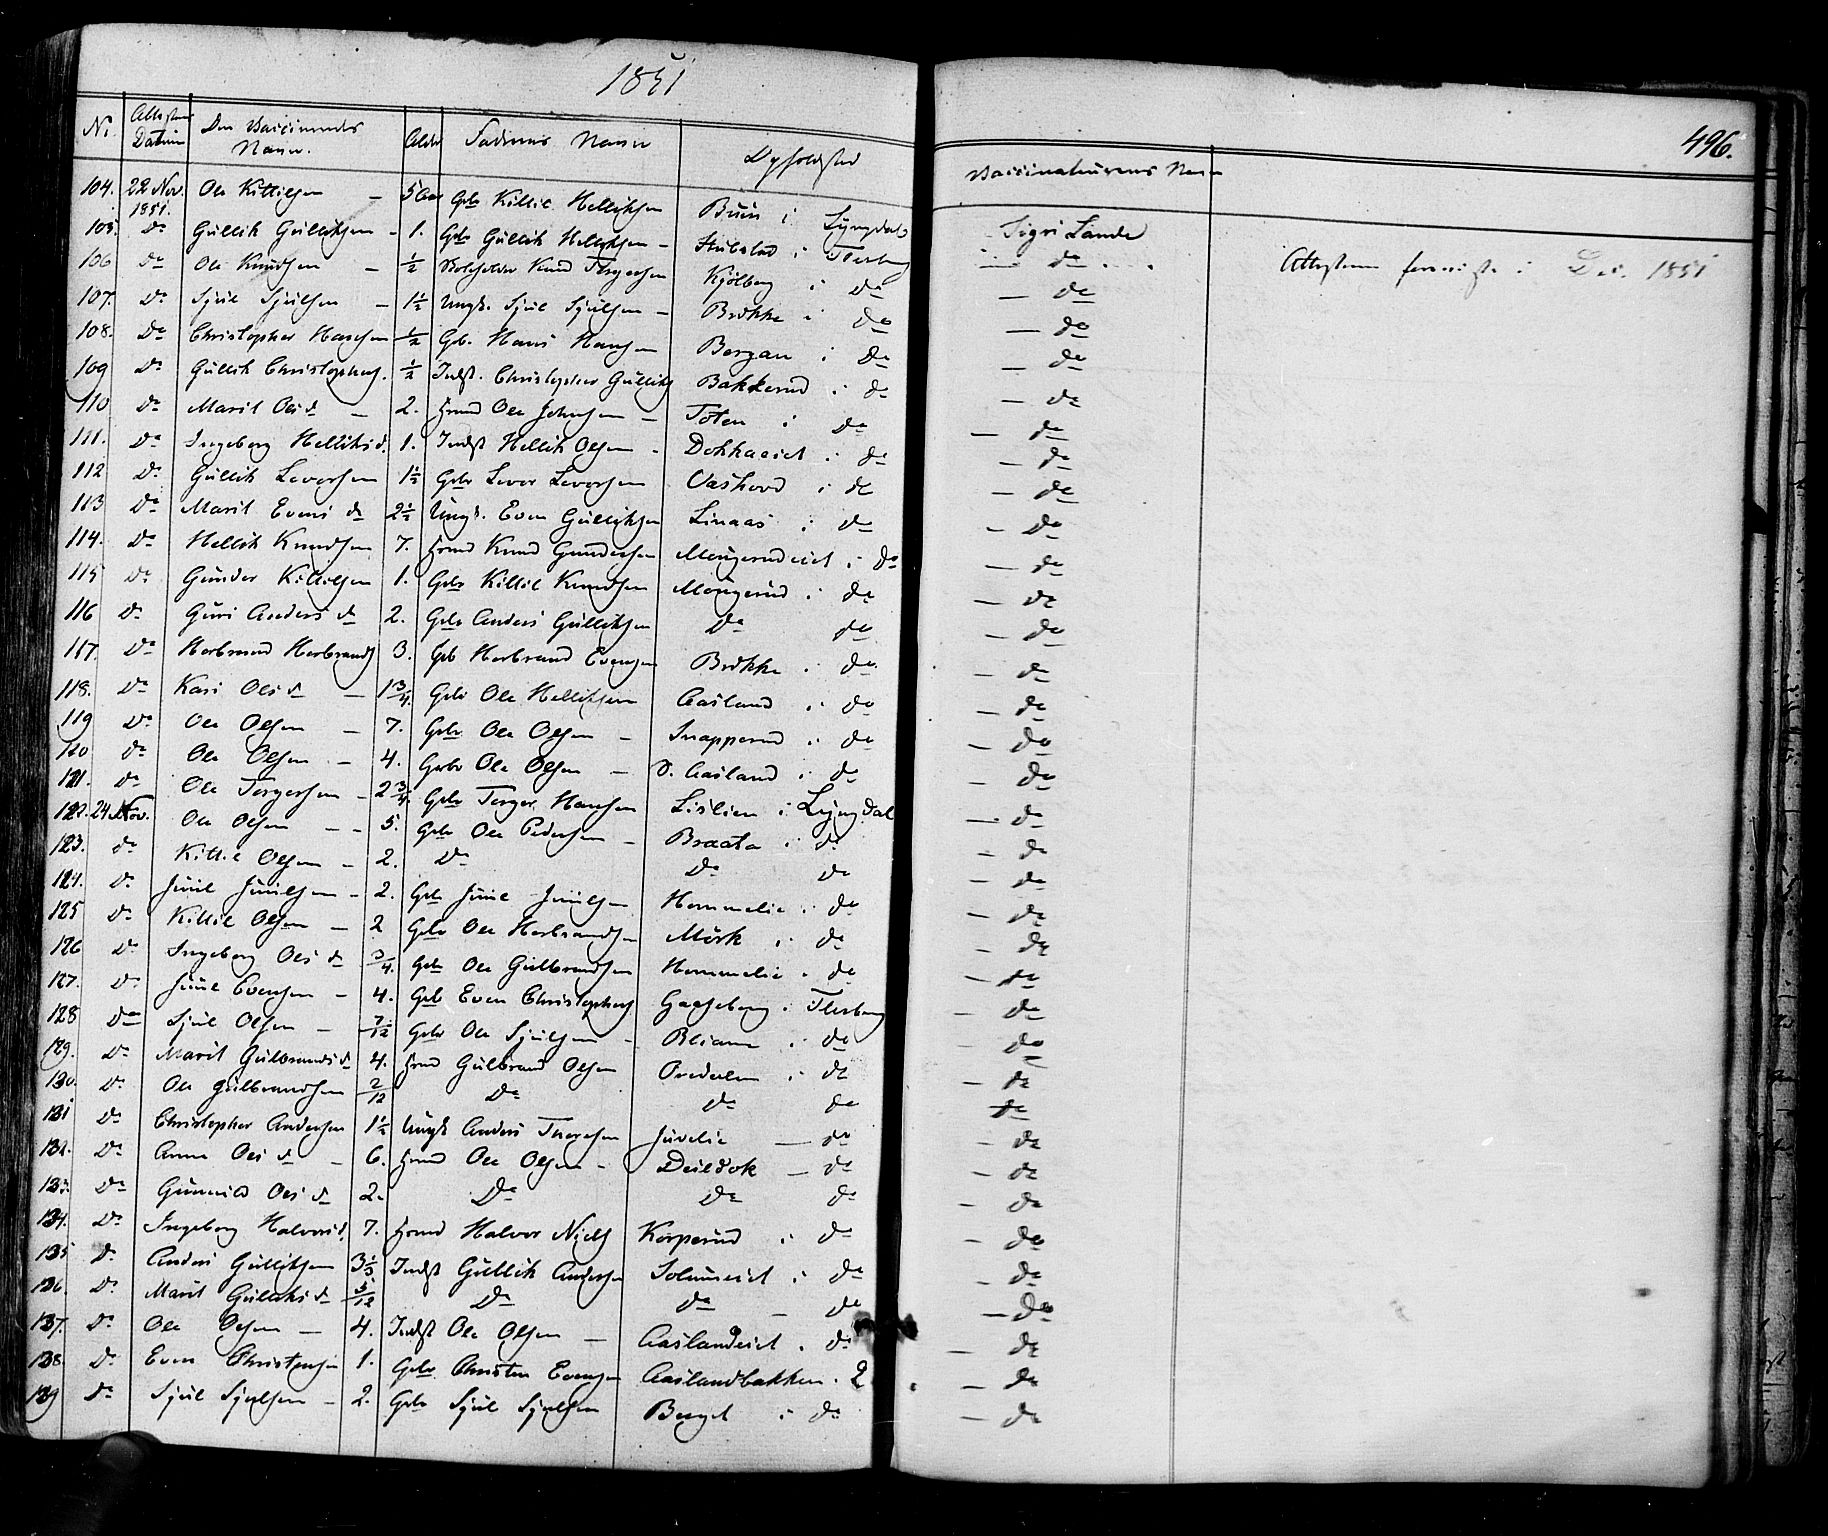 1851
496.
No. Attestens Datum Den Vaccineredes Navn. Alder Faderens Navn Opholdsted Vaccinateurens Navn
104. 22 Nov. 1851. Ole Kittilsen - 5 Aar Gbr Kittil Helliksen Buin i Lyngdal Sigri Lande
105. Do Gullik Gulliksen - 1. Gbr Gullik Helliksen - Stubstad i Flesberg - do Attesterne fremviste i Dec. 1851
106 do Ole Knudsen - 1/2 Knud Kjölberg i do - do
107. Do Sjul Sjulsen - 1 1/2 Ungk. Sjul Sjulsen - Brökke i do - do
108. Do Christopher Hansen 1/2 Gb. Hans Hansen Bergan i Do - do
109 Do Gullik Christophers. 1/2 Indst. Christopher Gulliks Bakkerud i do - do
110 Do Marit Olsd - 2. Hmd Ole Johnsen - Toten i do - do
111. Do Ingeborg Helliksd. 1. Indst Hellik Olsen - Dokkaeiet i do - do
112 Do Gullik Leversen 1 1/2 Gbr Lever Leversen Vashovd i do - do
113 Do Marit Evens d 2 1/2 Ungk. Even Gulliksen Linaas i do - do
114. Do Hellik Knudsen 7. Hmd Knud Gundersen Mougerudeiet i do - do
115 Do Gunder Kittilsen 1. Gbr Kittil Knudsen Mougerud i do - do
116 Do Guri Anders d 2. Gbr Anders Gulliksen Do do - do
117. Do Herbrand Herbrands 3. Gb Herbrand Evensen Brökke i do - do
118. Do Kari Olsd - 1 3/4 Gbr Ole Helliksen Aasland i do - do
119 Do Ole Olsen - 7. Gbr Ole Olsen - Snapperud i do - do
120 do Ole Olsen - 4. Gbr Ole Olsen - S. Aasland i do - do
121. do Ole Torgersen - 2 3/4 Gbr Torger Hansen Lislien i Lyngdal - do
122. 24 Nov. Ole Olsen - 5. Gbr Ole Pedersen - Braata i do - do
123. do Kittil Olsen - 2. Do Do do - do
124. Do Juul Juulsen - 2. Gbr Juul Juulsen Hemmelie i do - do
125 Do Kittil Olsen - 2 Gbr Ole Herbrandsen Mörk i do - do
126 Do Ingeborg Ols d 3/4 Gbr Ole Gulbrandsen Hemmelie i do - do
127. Do Juul Evensen - 4. Gb Even Christophers Gaaseberg i Flesberg - do
128 Do Sjul Olsen - 7/12 Gbr Ole Sjulsen - i do - do
129. Do Marit Gulbrandsd 4. Hmd Gulbrand Olsen i do - do
130. Do Ole Gulbrandsen 2/12 Do do do - do
131 Do Christopher Andersen 1 1/2 Ungk Anders Juvelie - do - do
132. Do Anne Ols d - 6. Hmd Ole Olsen - Deildok - do - do
133. Do Gunnild Ols d 2. Do do do - do
134. Do Ingeborg Halvorsd. 7. Hmd Halvor Niels Korperud i do - do
135 Do Anders Gulliksen 3 1/2 Indst Gullik Andersen Solumseiet i do - do
136. Do Marit Gulliks d 5/12 Do do - do - do
137. Do Ole Olsen - 4. Indst Ole Olsen - Aaslandeiet i do - do
138. Do Even Christensen 1. Gbr Christen Evensen Aaslandbakken i - do
139 Do Sjul Sjulsen - 2. Gbr Sjul Sjulsen Berget i do - do